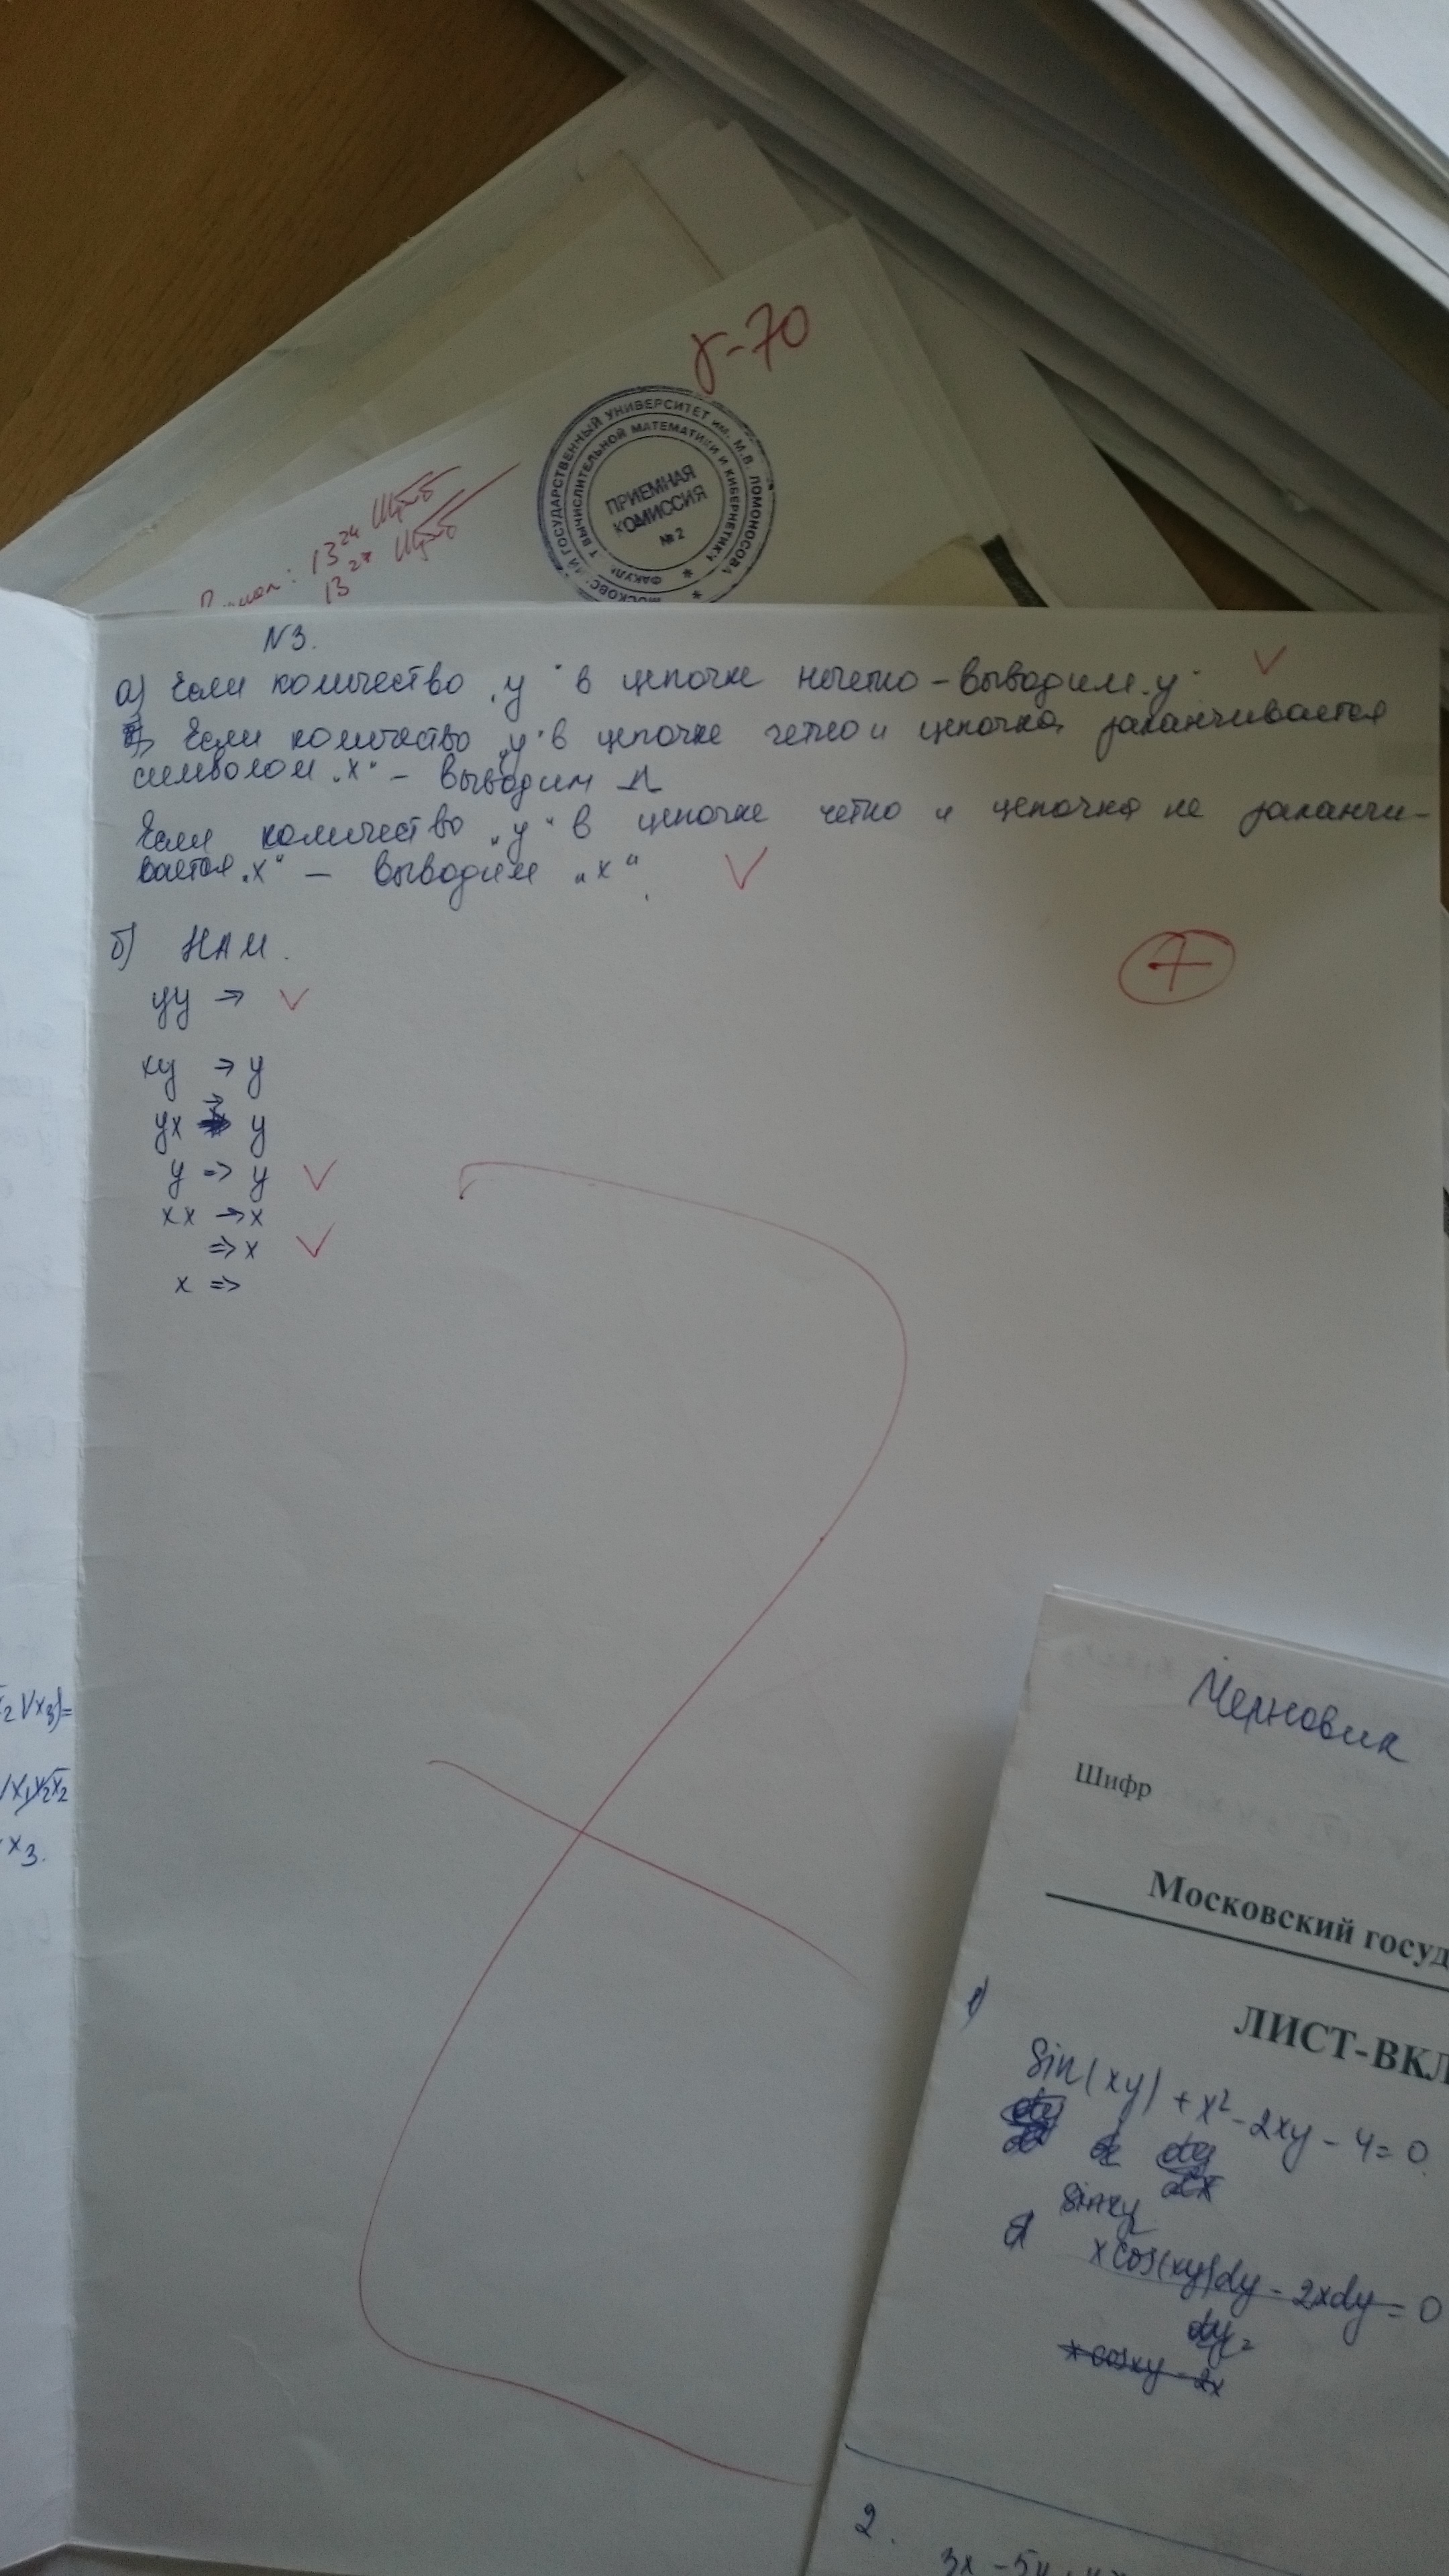 γ-70
МОСКОВСКИЙ ГОСУДАРСТВЕННЫЙ УНИВЕРСИТЕТ им. М.В. ЛОМОНОСОВА
ФАКУЛЬТ ВЫЧИСЛИТЕЛЬНОЙ МАТЕМАТИКИ И КИБЕРНЕТИКИ
ПРИЕМНАЯ
КОМИССИЯ
№ 2
13²⁴
13²⁸
N3.
а) Если количество „y" в цепочке нечетно – выводим „y"
Если количество „y" в цепочке четно и цепочка заканчивается
символом „x" – выводим Λ
Если количество „y" в цепочке четно и цепочка не заканчи-
вается „x" – выводим „x"
б) НАМ.
yy →
xy → y
yx → y
y => y
xx → x
=> x
x =>
+
₂Vx₃)=
x₃.
Черновик
Шифр
Московский госуд
ЛИСТ-ВКЛ
1)
Sin(xy) + x² - 2xy - 4 = 0
sinxy
xcos(xy)dy - 2xdy = 0
dy =
x cosxy - 2x
2.
3x - 5y